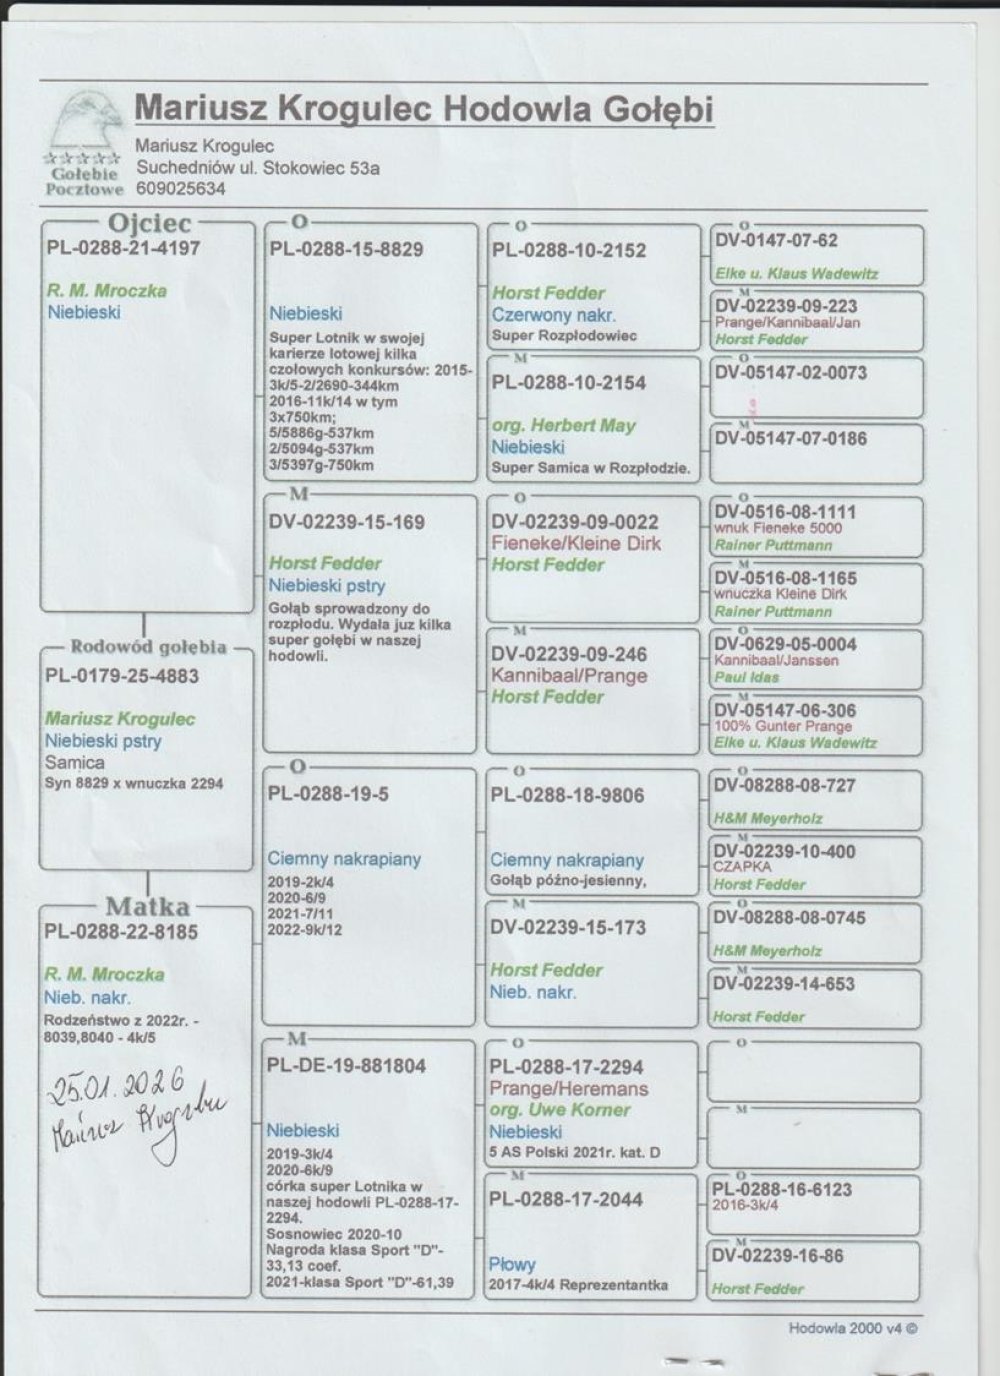 Mariusz Krogulec Hodowla Gołębi
Mariusz Krogulec
Suchedniów ul. Stokowiec 53a
609025634
Gołębie
Pocztowe
Ojciec
PL-0288-21-4197
R. M. Mroczka
Niebieski
Rodowód gołębia
PL-0179-25-4883
Mariusz Krogulec
Niebieski pstry
Samica
Syn 8829 x wnuczka 2294
Matka
PL-0288-22-8185
R. M. Mroczka
Nieb. nakr.
Rodzeństwo z 2022r. -
8039,8040 - 4k/5
25.01.2026
Mariusz Krogulec
O
PL-0288-15-8829
Niebieski
Super Lotnik w swojej
karierze lotowej kilka
czołowych konkursów: 2015-
3k/5-2/2690-344km
2016-11k/14 w tym
3x750km;
5/5886g-537km
2/5094g-537km
3/5397g-750km
M
DV-02239-15-169
Horst Fedder
Niebieski pstry
Gołąb sprowadzony do
rozpłodu. Wydała juz kilka
super gołębi w naszej
hodowli.
O
PL-0288-19-5
Ciemny nakrapiany
2019-2k/4
2020-6/9
2021-7/11
2022-9k/12
M
PL-DE-19-881804
Niebieski
2019-3k/4
2020-6k/9
córka super Lotnika w
naszej hodowli PL-0288-17-
2294.
Sosnowiec 2020-10
Nagroda klasa Sport "D"-
33,13 coef.
2021-klasa Sport "D"-61,39
O
PL-0288-10-2152
Horst Fedder
Czerwony nakr.
Super Rozpłodowiec
M
PL-0288-10-2154
org. Herbert May
Niebieski
Super Samica w Rozpłodzie.
O
DV-02239-09-0022
Fieneke/Kleine Dirk
Horst Fedder
M
DV-02239-09-246
Kannibaal/Prange
Horst Fedder
O
PL-0288-18-9806
Ciemny nakrapiany
Gołąb późno-jesienny,
M
DV-02239-15-173
Horst Fedder
Nieb. nakr.
O
PL-0288-17-2294
Prange/Heremans
org. Uwe Korner
Niebieski
5 AS Polski 2021r. kat. D
M
PL-0288-17-2044
Płowy
2017-4k/4 Reprezentantka
O
DV-0147-07-62
Elke u. Klaus Wadewitz
M
DV-02239-09-223
Prange/Kannibaal/Jan
Horst Fedder
O
DV-05147-02-0073
M
DV-05147-07-0186
O
DV-0516-08-1111
wnuk Fieneke 5000
Rainer Puttmann
M
DV-0516-08-1165
wnuczka Kleine Dirk
Rainer Puttmann
O
DV-0629-05-0004
Kannibaal/Janssen
Paul Idas
M
DV-05147-06-306
100% Gunter Prange
Elke u. Klaus Wadewitz
O
DV-08288-08-727
H&M Meyerholz
M
DV-02239-10-400
CZAPKA
Horst Fedder
O
DV-08288-08-0745
H&M Meyerholz
M
DV-02239-14-653
Horst Fedder
O
M
O
PL-0288-16-6123
2016-3k/4
M
DV-02239-16-86
Horst Fedder
Hodowla 2000 v4 ©